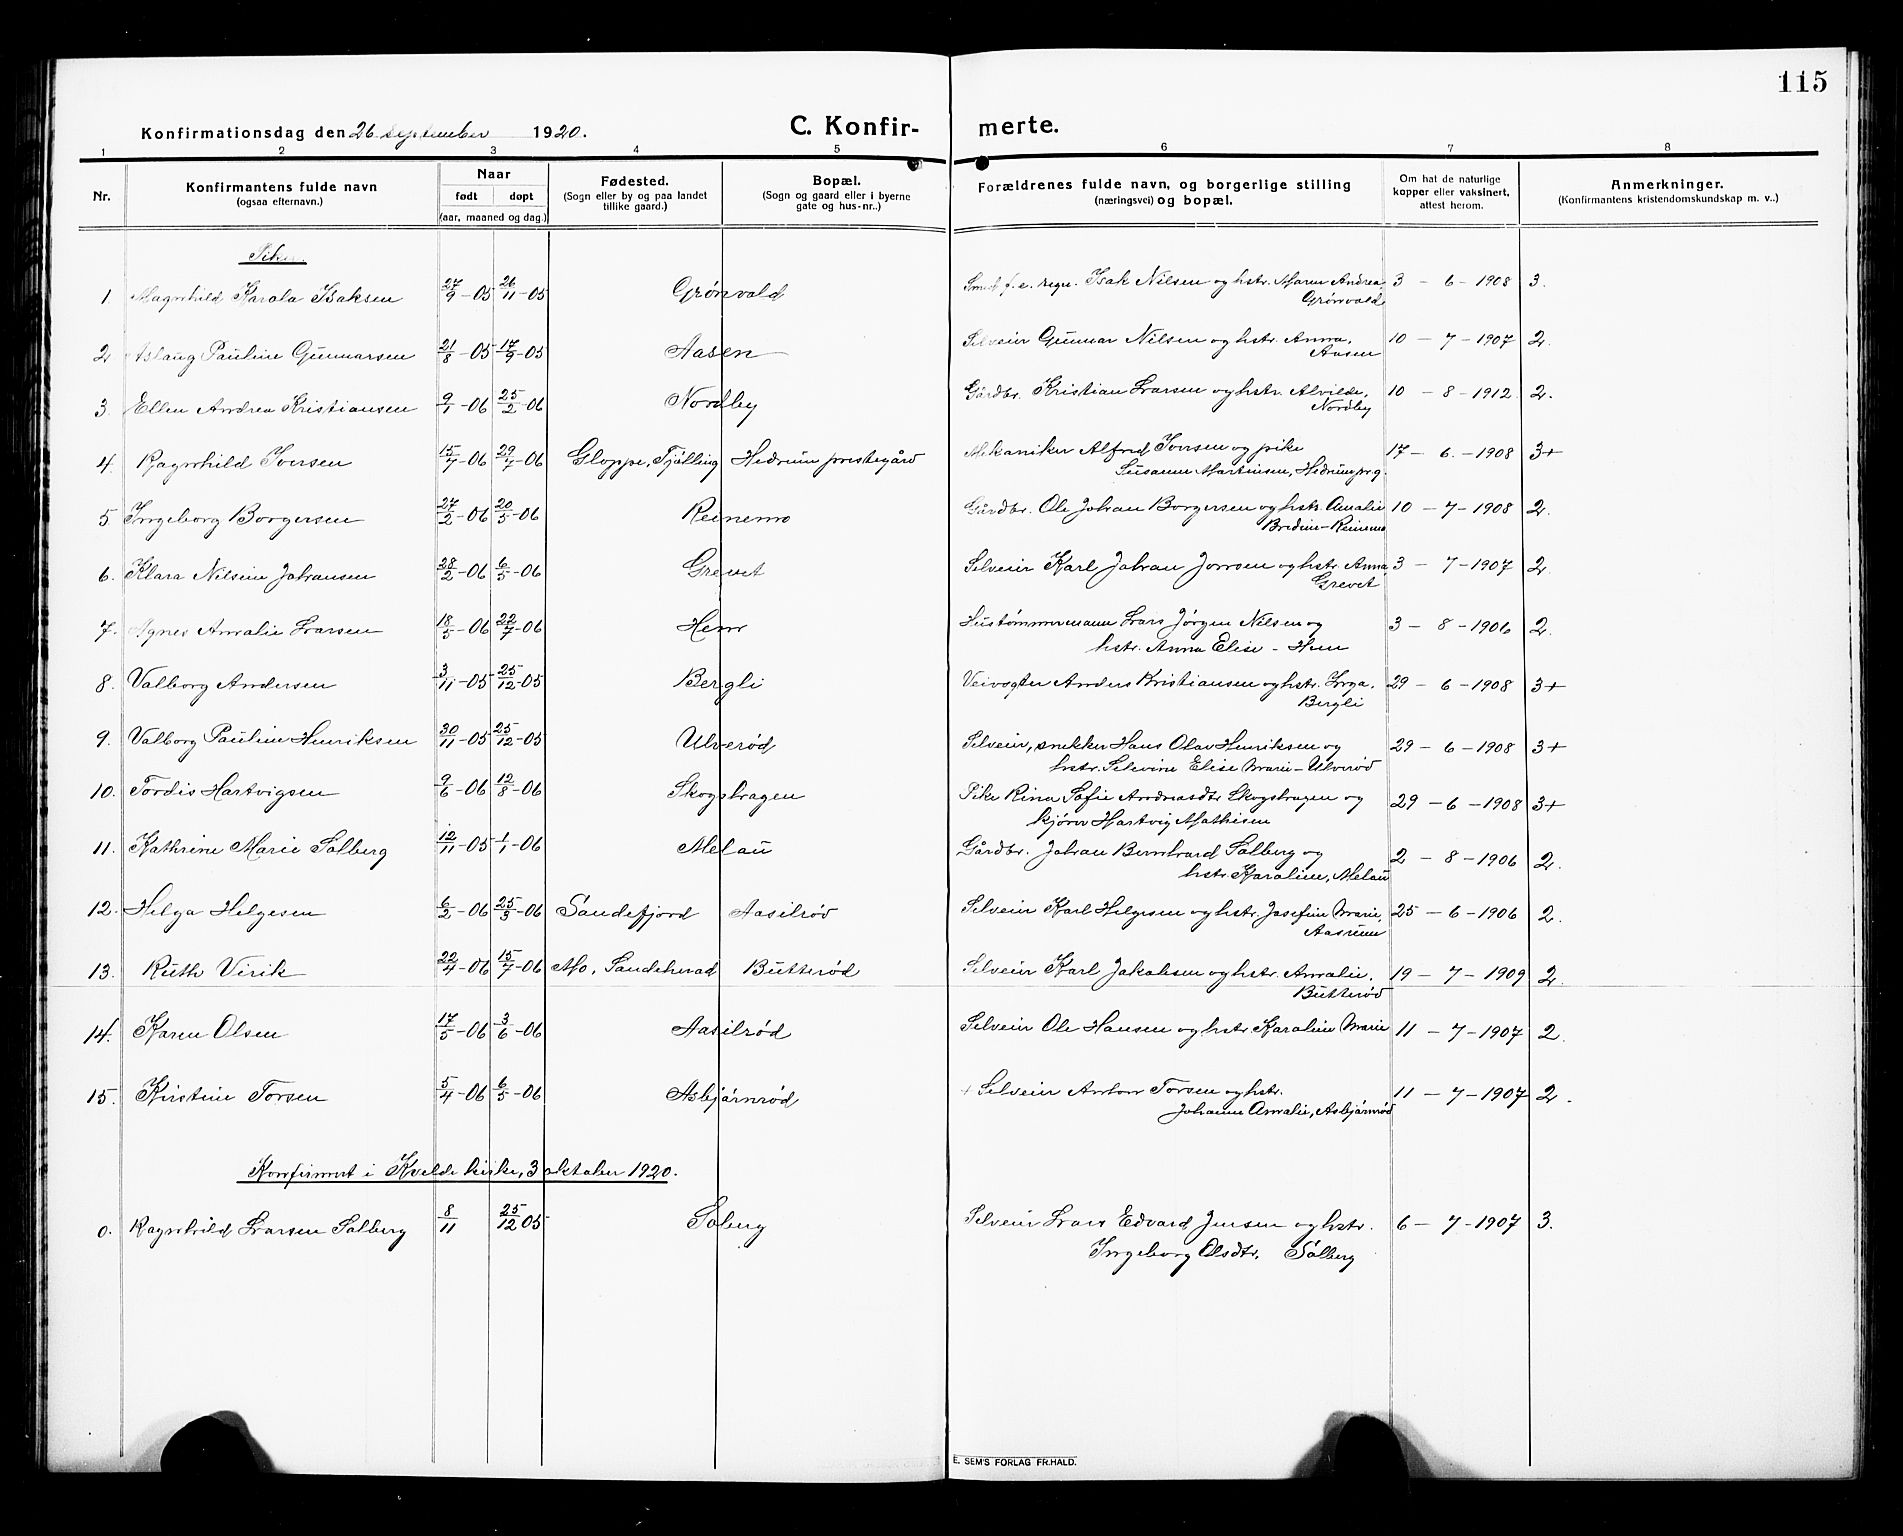 115
Konfirmationsdag den 26 september 1920.
C. Konfir-
merte.
1 2 3 4 5 6 7 8
Nr.
Konfirmantens fulde navn
(ogsaa efternavn.)
Naar
født døpt
(aar, maaned og dag.)
Fødested.
(Sogn eller by og paa landet
tillike gaard.)
Bopæl.
(Sogn og gaard eller i byerne
gate og hus-nr..)
Forældrenes fulde navn, og borgerlige stilling
(næringsvei) og bopæl.
Om hat de naturlige
kopper eller vaksinert,
attest herom.
Anmerkninger.
(Konfirmantens kristendomskundskap m. v..)
Piker.
1. Magnhild Karola Isaksen 27/9-05 26/11-05 Grønvald Smed f. e. Isak Nilsen og hstr. Maren Andrea, 3 - 6 - 1908 3.
Grønvald
2. Aslaug Pauline Gunnarsen 21/8-05 17/9-05 Aasen Selveier Gunnar Nilsen og hstr. Anna, 10 - 7 - 1907 2.
Aasen
3. Ellen Andrea Kristiansen 9/1-06 25/2-06 Nordby Gårdbr. Kristian Larsen og hstr. Alvilde, 10 - 8 - 1912 2.
Nordby
4. Ragnhild Iversen 15/7-06 29/7-06 Gloppe, Tjølling Hedrum prestegård Mekaniker Alfred Iversen og pike 17 - 6 - 1908 3+
Susanne Martinsen, Hedrum prg.
5. Ingeborg Borgersen 27/2-06 20/5-06 Reinemo Gårdbr. Ole Johan Borgersen og hstr. Amalie 10 - 7 - 1908 2.
Bredine - Reinemo
6. Klara Nilsine Johansen 28/2-06 6/5-06 Grevet Selveier Karl Johan Jonsen og hstr. Anna 3 - 7 - 1907 2.
Grevet
7. Agnes Amalie Larsen 18/5-06 22/7-06 Hem Hustømmermann Lars Jørgen Nilsen og 3 - 8 - 1906 2.
hstr. Anna Elise - Hem
8. Valborg Andersen 3/11-05 25/12-05 Bergli Veivogter Anders Kristiansen og hstr. Inga, 29 - 6 - 1908 3+
Bergli
9. Valborg Pauline Henriksen 30/11-05 25/12-05 Ulverød Selveier, snekker Hans Olav Henriksen og 29 - 6 - 1908 3+
hstr. Selvine Elise Marie - Ulverød
10. Tordis Hartvigsen 9/6-06 12/8-06 Skogshagen Pike Rina Sofie Andreasdtr Skogshagen og 29 - 6 - 1908 3+
kjører Hartvig Mathisen
11. Kathrine Marie Solberg 12/11-05 1/1-06 Melau Gårdbr. Johan Bernhard Solberg og 2 - 8 - 1906 2.
hstr. Karoline, Melau
12. Helga Helgesen 6/2-06 25/3-06 Sandefjord Aasilrød Selveier Karl Helgesen og hstr. Josefine Marie, 25 - 6 - 1906 2.
Aasrum
13. Ruth Virik 22/4-06 15/7-06 Mo, Sandeherad Butterød Selveier Karl Jakobsen og hstr. Amalie, 19 - 7 - 1909 2.
Butterød
14. Karen Olsen 17/5-06 3/6-06 Aasilrød Selveier Ole Hansen og hstr. Karoline Marie 11 - 7 - 1907 2.
15. Kirstine Torsen 5/4-06 6/5-06 Asbjørnrød + Selveier Anton Torsen og hstr. 11 - 7 - 1907 2.
Johanne Amalie, Asbjørnrød
Konfirmert i Kvelde kirke, 3 oktober 1920.
0. Ragnhild Larsen Solberg 8/11 25/12 05 Soberg Selveier Lars Edvard Jensen og hstr. 6 - 7 - 1907 3.
Ingeborg Olsdtr. Solberg
E. SEM'S FORLAG FR.HALD.